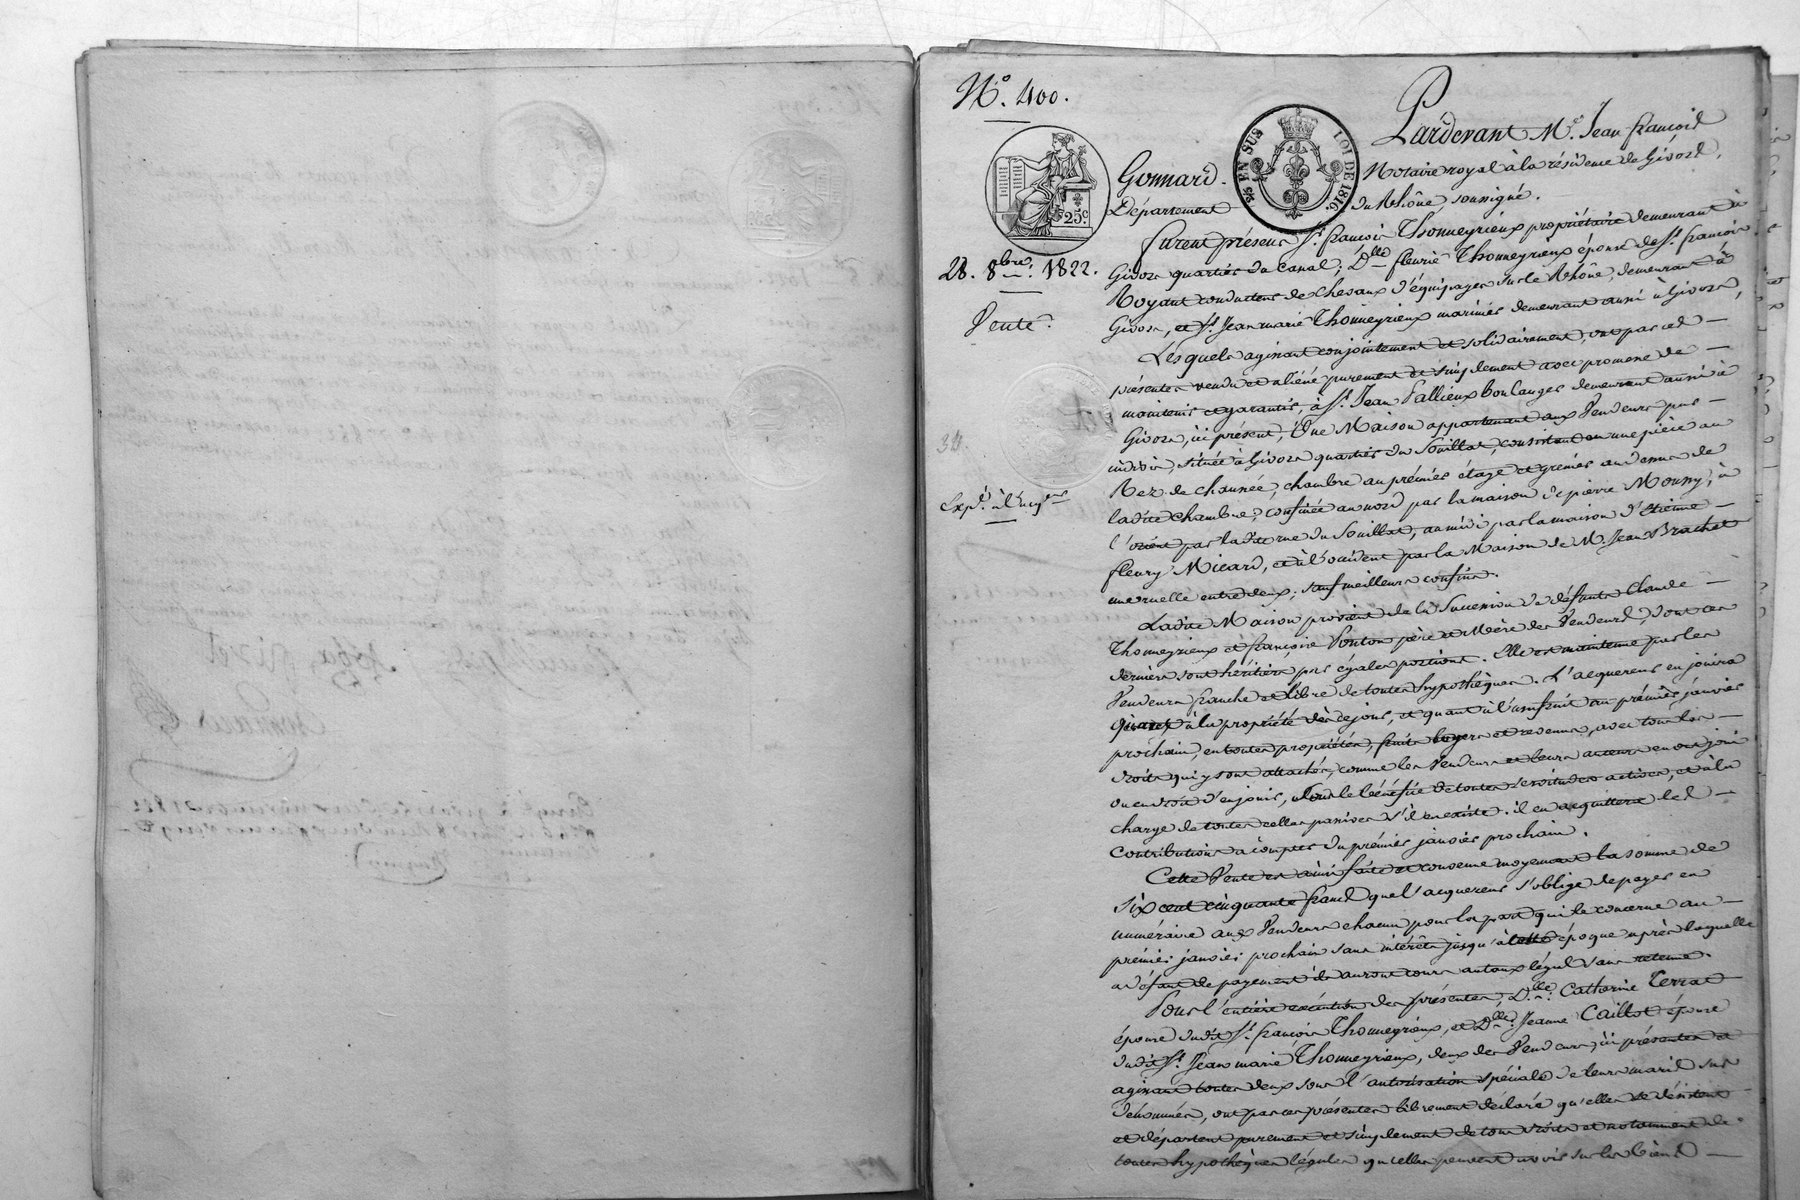 N.° 400.
Pardevant M.e Jean françois
Gonnard. Notaire royal à la résidence de Givors,
Département du Rhône, soussigné.
25 EN SUS LOI DE 1816.
25c
28. 8bre 1822.
Vente.
33.
Exp.n à l'acq.eur
furent présens S.r françois Thonneyrieux propriétaire demeurant à
Givors quartier du Canal; D.lle fleurie Thonneyrieux épouse de S.r françois
Royant conducteur de chevaux d'équipages sur le Rhône, demeurant à
Givors, et S.r Jean marie Thonneyrieux marinier demeurant aussi à Givors,
Lesquels agissant conjointement et solidairement, ont par ces
présentes vendu et aliéné purement et simplement avec promesse de
maintenir et garantir, à S.r Jean Pallieux boulanger demeurant aussi à
Givors, ici présent, Une Maison appartenant aux Vendeurs par
indivis, située à Givors quartier du Souillat, consistant en une pièce au
Rez de chaussée, chambre au premier étage et grenier au dessus de
ladite chambre; confinée au nord par la maison de pierre Mouny, à
l'orient par ladite rue du Souillat, au midi par la maison d'étienne
fleury Micard, et à l'occident par la Maison de M. Jean Brachet
une ruelle entre deux; sauf meilleurs confins.
Ladite Maison provient de la Succession de défunts Claude
Thonneyrieux et françoise Ponton père et Mère des Vendeurs, dont ces
derniers sont héritiers par égales portions. Elle est maintenue par les
Vendeurs franche et libre de toutes hypothèques. L'acquereur en jouira
Quant à la propriété dès ce jour, et quant à l'usufruit au premier janvier
prochain, en toutes propriétés, fruits loyers et revenus, avec tous les
droits qui y sont attachés, comme les Vendeurs et leurs auteurs en ont joui
ou en droit d'en jouir, sous le bénéfice de toutes servitudes actives, et à la
charge de toutes celles passives s'il en existe. il en acquittera les
Contributions à compter du premier janvier prochain.
Cette Vente est ainsi faite et convenue moyennant la somme de
Six cent cinquante francs que l'acquereur s'oblige de payer en
numéraire aux Vendeurs chacun pour la part qui le concerne au
premier janvier prochain sans intérêts jusqu'à cette époque après laquelle
à défaut de payement ils auront cours au taux légal sans retenue.
Pour l'entière exécution des présentes, D.lle Catherine Terrat
épouse dudit S.r françois Thonneyrieux, et D.lle Jeanne Caillot épouse
dudit S.r Jean marie Thonneyrieux, deux des Vendeurs, ici présentes et
agissant toutes deux sous l'autorisation spéciale de leurs maris sus
dénommés, ont par ces présentes librement déclaré qu'elles se désistent
et départent purement et simplement de tous droits et notamment de
toutes hypothèques légales qu'elles peuvent avoir sur les biens